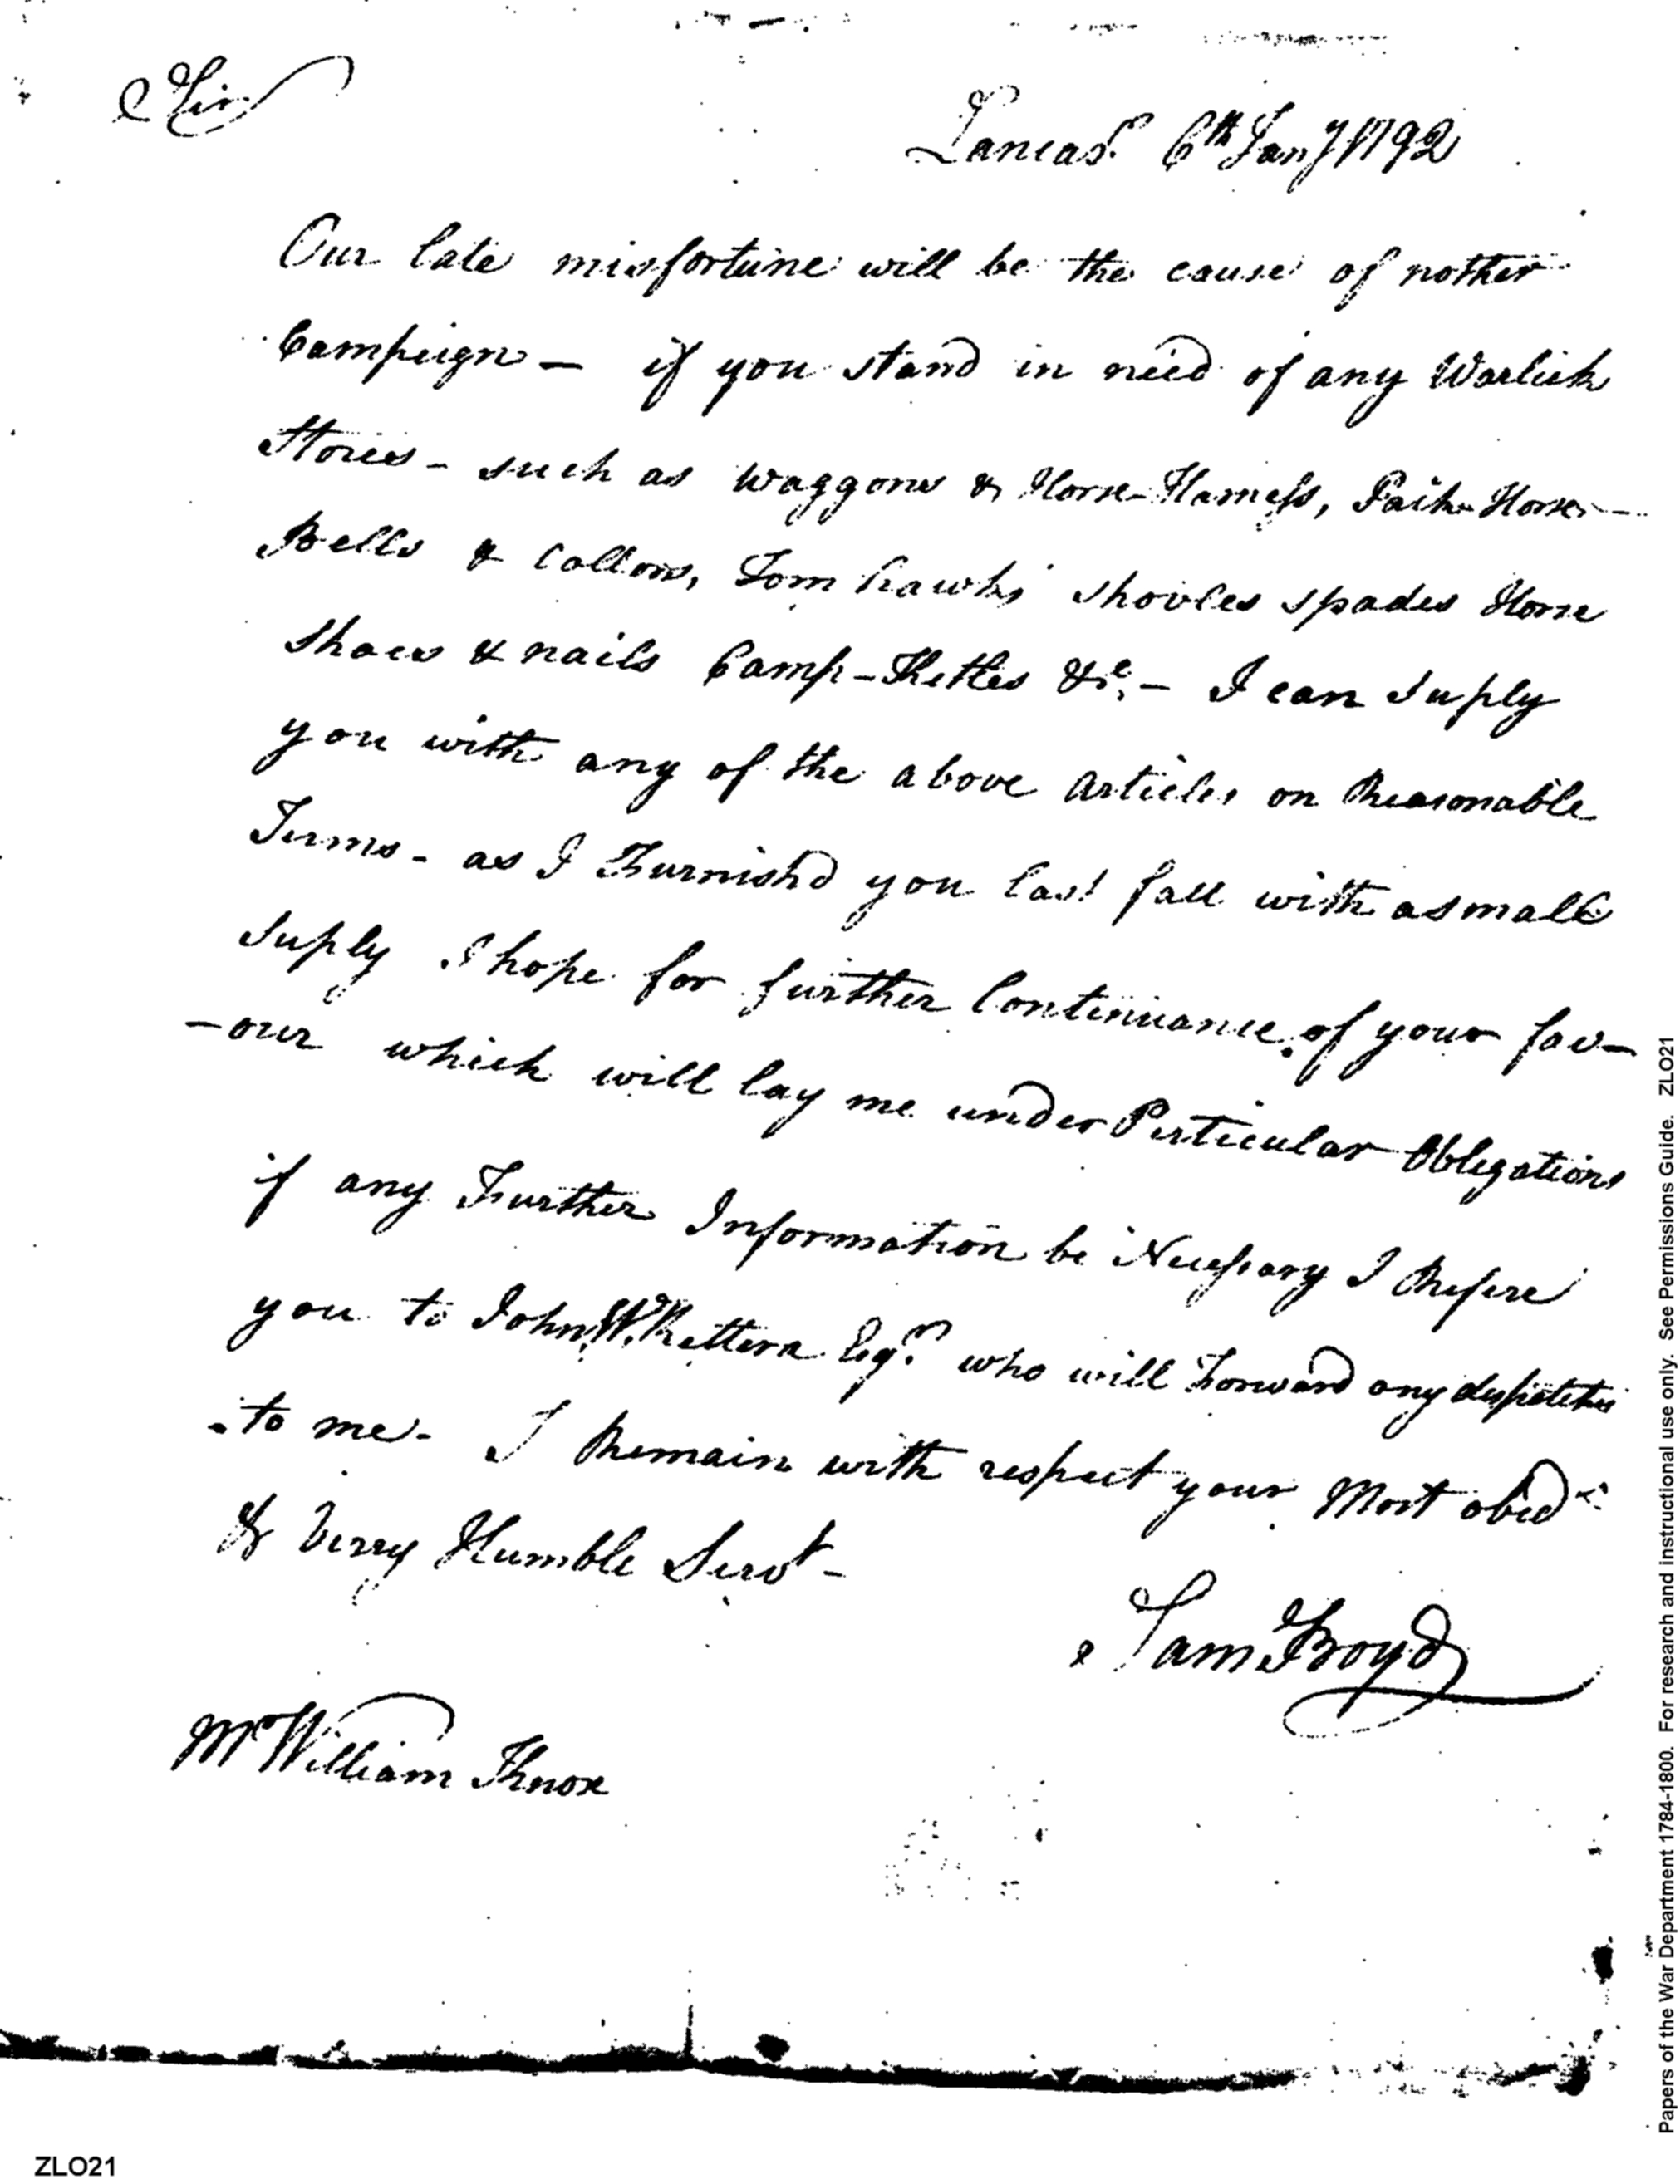 Sir
Lancasr. 6th Jany 1792
Our late misfortune will be the cause of nother
Campeign — if you stand in need of any Warlick
Stores - such as Waggons & Horse-Harness, Pack Horse
Bells & Collors, Tom hawks shovles spades Horse
Shoes & nails Camp-Kettles &c. — I can Suply
you with any of the above Articles on Reasonable
Terms - as I Furnishd you last fall with a small
Suply I hope for further Continuance of your fav-
-our which will lay me under Perticular Obligations
if any Further Information be Necessary I Refere
you to John W. Kittera Esqr. who will Forward any dispatches
to me - I Remain with respect your Most obedt
& Verry Humble Servt -
Sam Boyd
Mr William Knox
Papers of the War Department 1784-1800. For research and instructional use only. See Permissions Guide. ZLO21
ZLO21